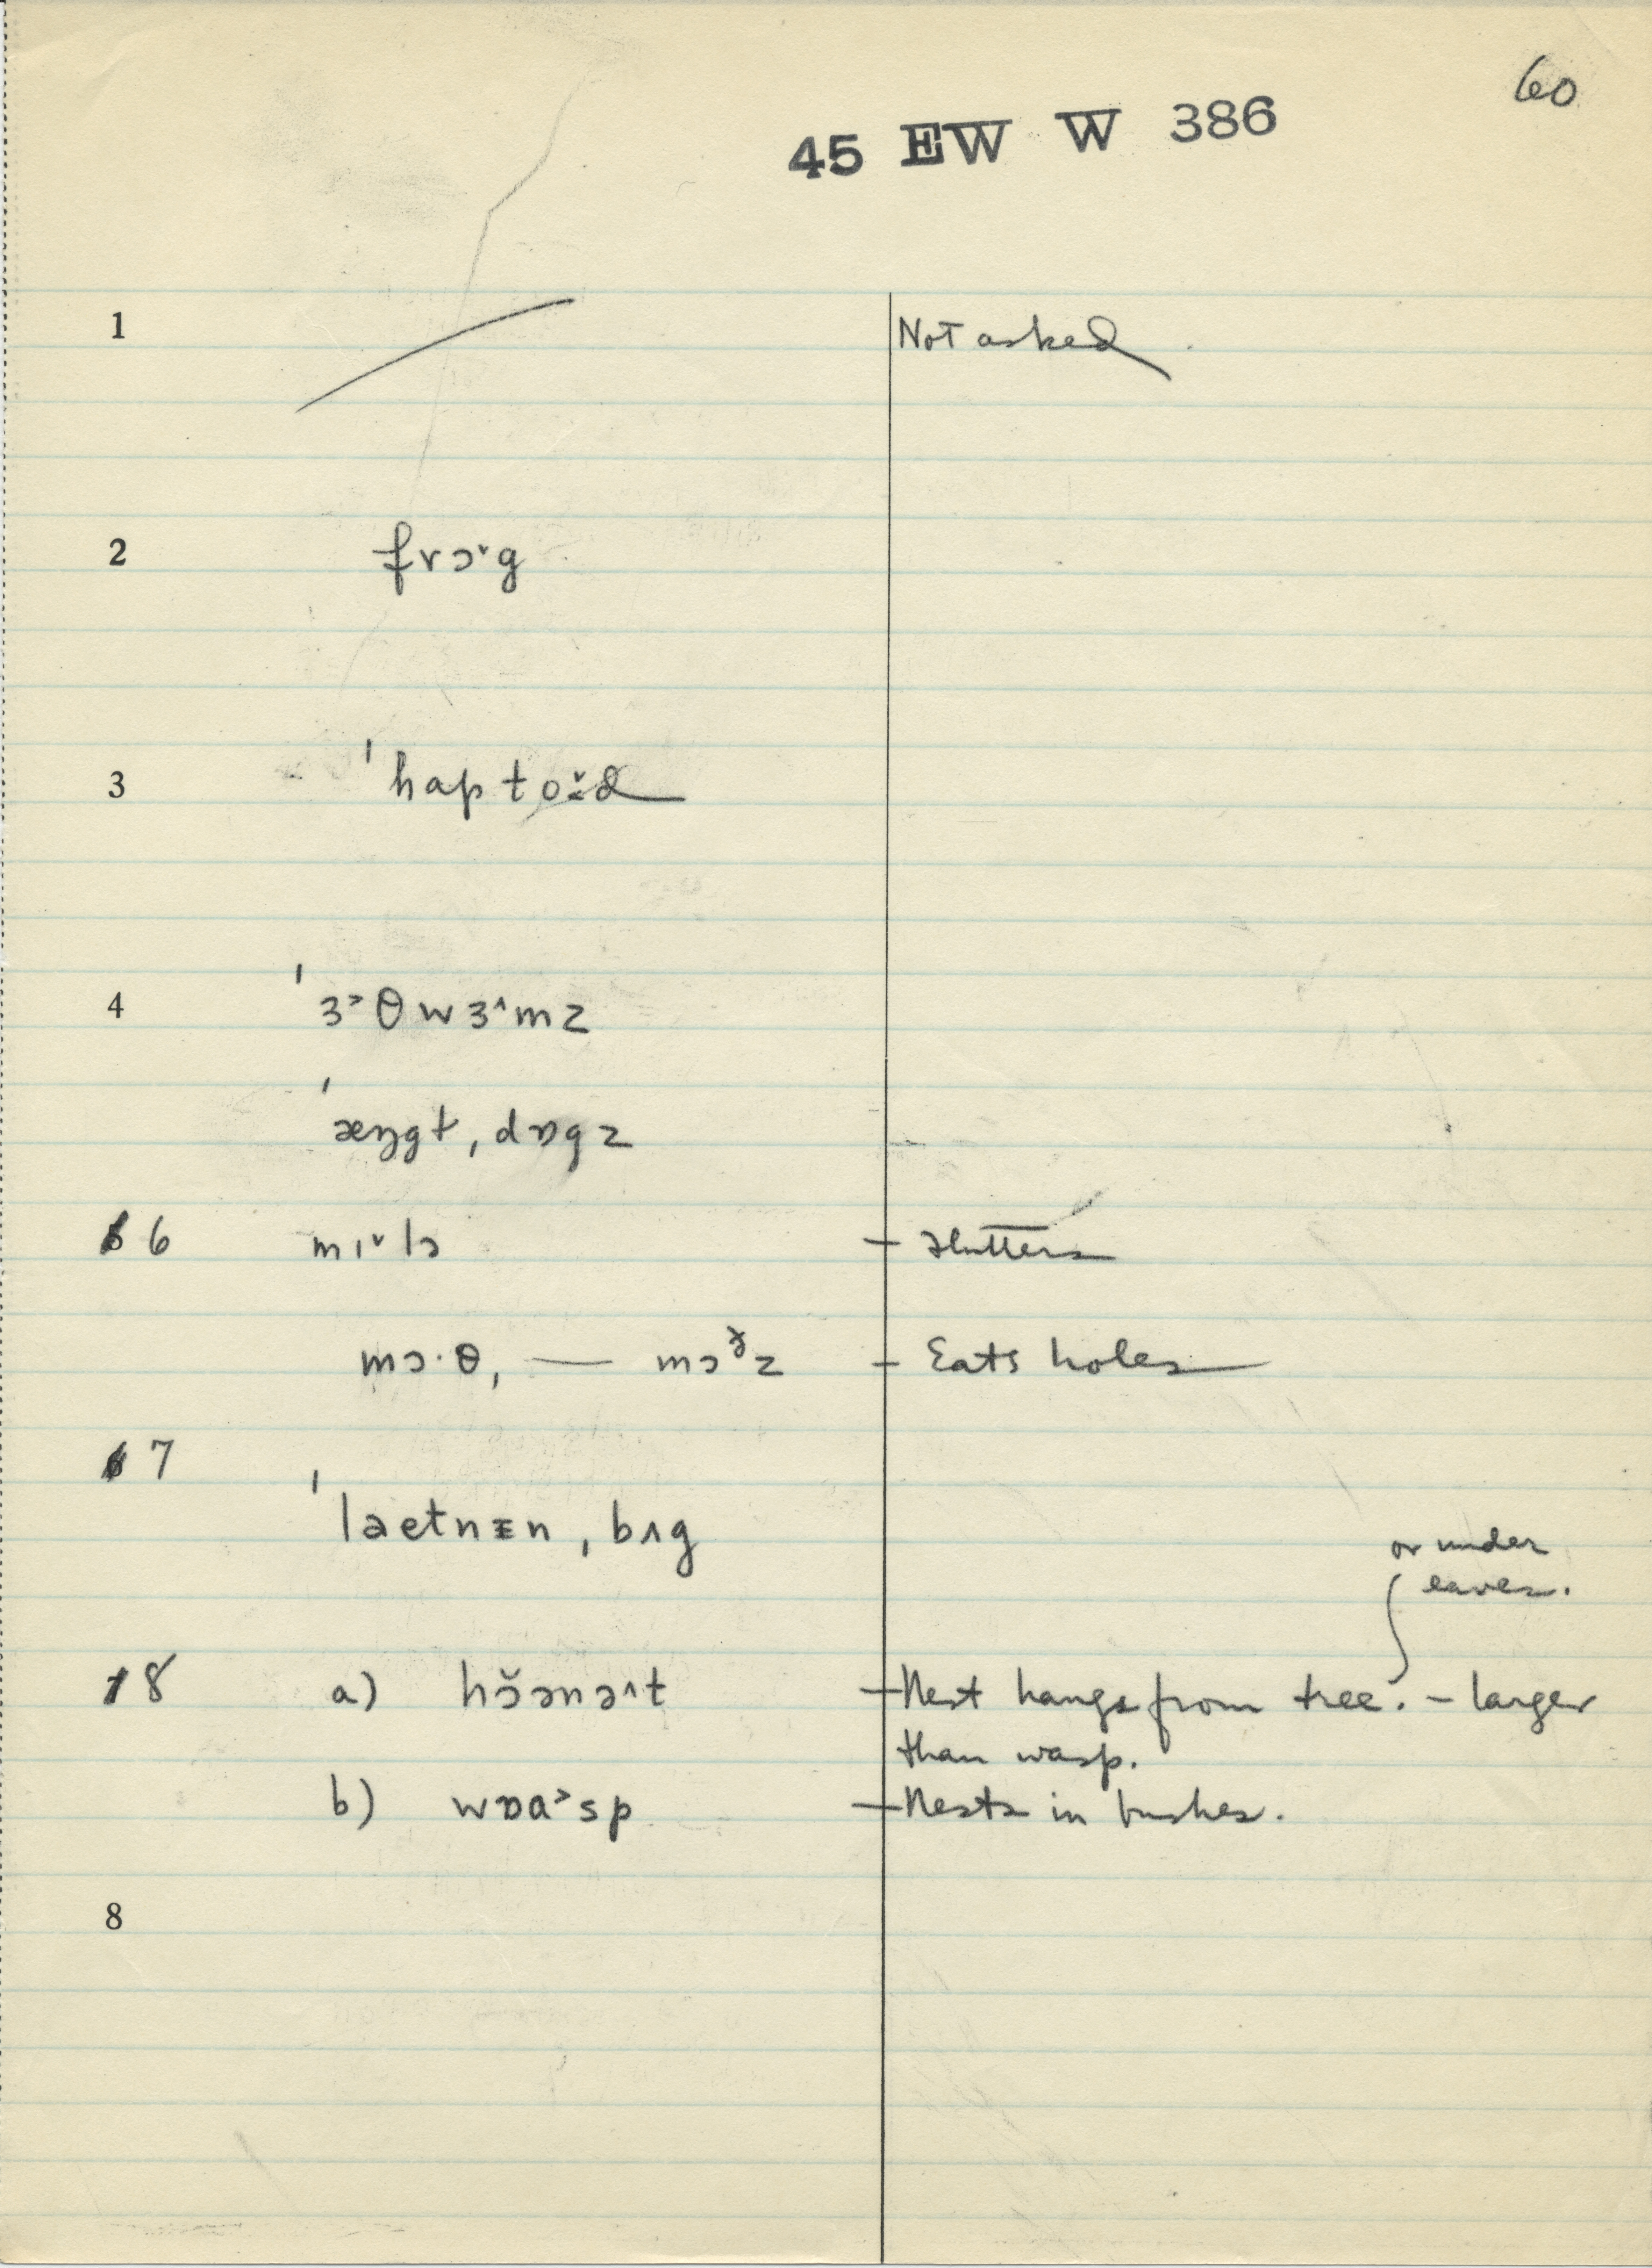 60
45 EW W 386
1 Not asked
2 frɔ˅g
3 ˈhaptoːd
4 ˈɜ˃θwɜ˄mz
ˈæŋgt, dɒgz
6 mɪ˅lɔ - flutters
mɔ·θ, — mɔᵒ̌z - Eats holes
7
ˈlaetnɪn, bʌg
or under
eaves.
8 a) hɔ̆ənə˄t - Nest hangs from tree. - larger
than wasp.
b) wɒa˃sp - Nests in bushes.
8